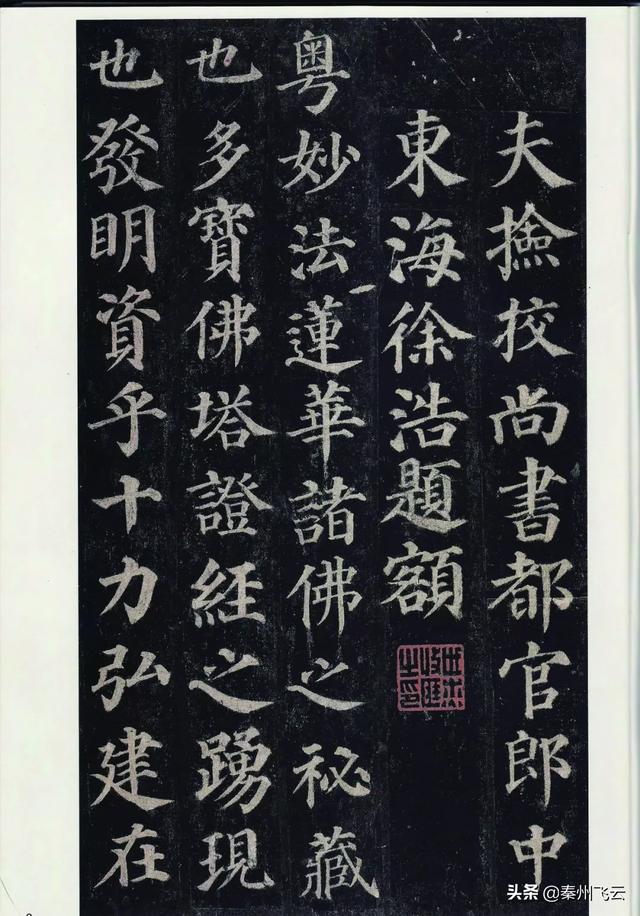 夫撿挍尚書都官郎中
東海徐浩題額
粤妙法蓮華諸佛之祕藏
也多寶佛塔證經之踴現
也發明資乎十力弘建在
头条@秦州飞云